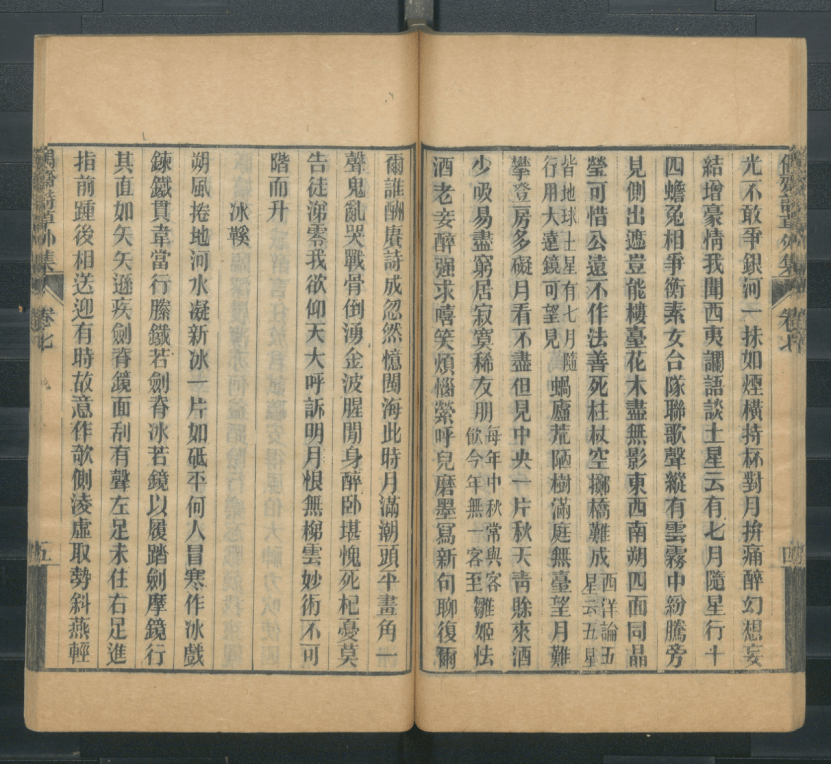 偶齋詩草外集 卷七 四
光不敢爭銀河一抹如煙橫持杯對月拚痛醉幻想妄
結增豪情我聞西夷讕語談土星云有七月隨星行十
四蟾兔相爭衡素女台隊聯歌聲縱有雲霧中紛騰旁
見側出遮豈能樓臺花木盡無影東西南朔四面同晶
瑩可惜公遠不作法善死拄杖空擲橋難成西洋論五星云五星
皆地球土星有七月隨行用大遠鏡可望見蝸廬荒陋樹滿庭無臺望月難
攀登房多礙月看不盡但見中央一片秋天青賒來酒
少吸易盡窮居寂寞稀友朋每年中秋常與客飲今年無一客至雛姬怯
酒老妾醉强求嘻笑煩惱縈呼兒磨墨寫新句聊復爾
爾誰酬賡詩成忽然憶閩海此時月滿潮頭平畫角一
聲鬼亂哭戰骨倒湧金波腥閒身醉卧堪愧死杞憂莫
告徒涕零我欲仰天大呼訴明月恨無梯雲妙術不可
階而升
冰鞵
朔風捲地河水凝新冰一片如砥平何人冒寒作冰戲
鍊鐵貫韋當行縢鐵若劍脊冰若鏡以履踏劍摩鏡行
其直如矢矢遜疾劍脊鏡面刮有聲左足未住右足進
指前踵後相送迎有時故意作欹側淩虛取勢斜燕輕
偶齋詩草外集 卷七 五